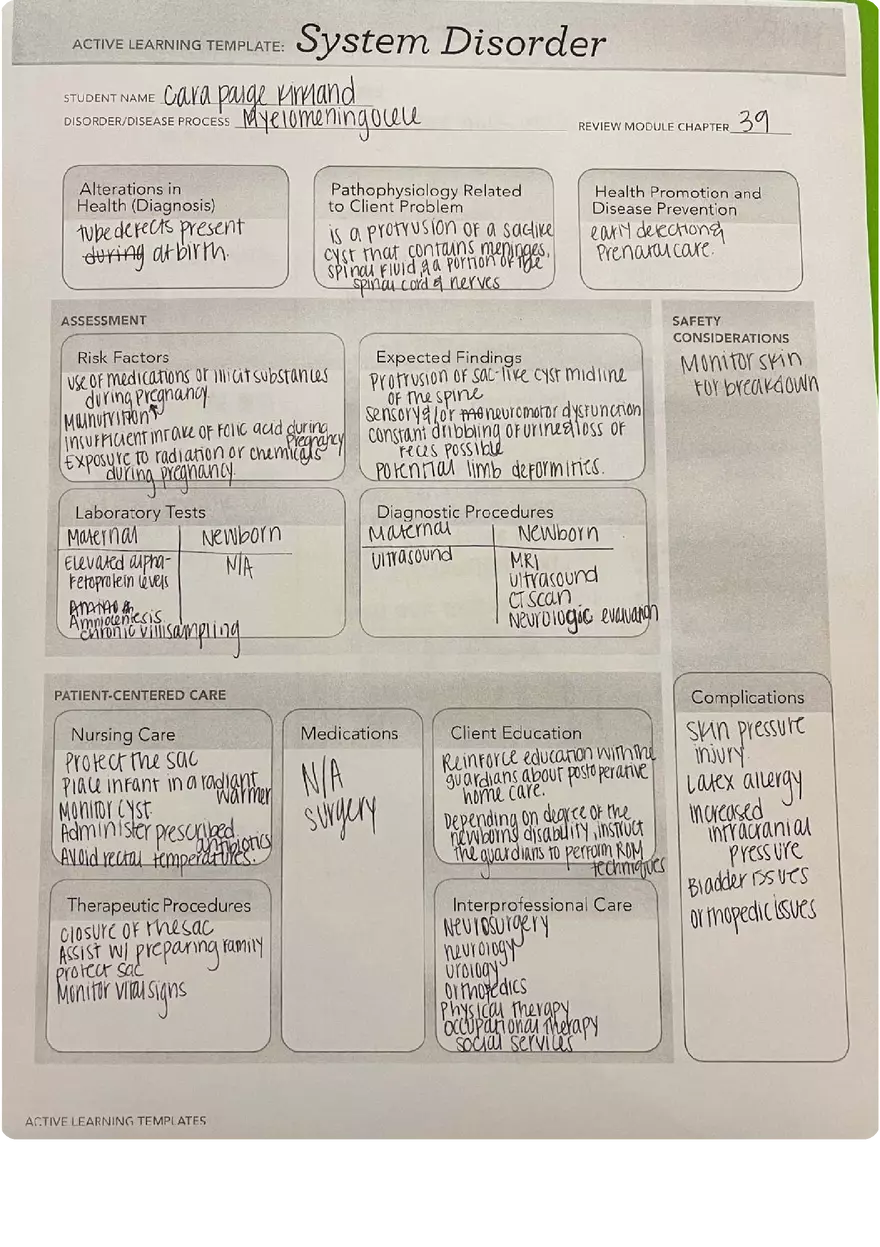 ACTIVE LEARNING TEMPLATE: System Disorder
STUDENT NAME Cara paige Kirkland
DISORDER/DISEASE PROCESS Myelomeningocele
REVIEW MODULE CHAPTER 39
Alterations in
Health (Diagnosis)
tube defects present
during at birth.
Pathophysiology Related
to Client Problem
is a protrusion of a saclike
cyst that contains meninges,
spinal fluid, & a portion of the
spinal cord & nerves
Health Promotion and
Disease Prevention
early detection &
Prenatal care.
ASSESSMENT
Risk Factors
use of medications or illicit substances
during pregnancy.
Malnutrition
Insufficient intake of folic acid during
pregnancy
Exposure to radiation or chemicals
during pregnancy.
Expected Findings
Protrusion of sac-like cyst midline
of the spine
Sensory &/or neuromotor dysfunction
constant dribbling of urine & loss of
feces possible
Potential limb deformities.
SAFETY
CONSIDERATIONS
Monitor skin
for breakdown
Laboratory Tests
Maternal
Newborn
Elevated alpha-
fetoprotein levels
N/A
Amniocentesis
chronic villi sampling
Diagnostic Procedures
Maternal
Newborn
ultrasound
MRI
ultrasound
CT scan
Neurologic evaluation
PATIENT-CENTERED CARE
Nursing Care
Protect the sac
Place infant in a radiant
warmer
Monitor cyst.
Administer prescribed
antibiotics
Avoid rectal temperatures.
Medications
N/A
surgery
Client Education
Reinforce education with the
guardians about postoperative
home care.
Depending on degree of the
newborns disability, instruct
the guardians to perform ROM
techniques
Complications
Skin pressure
injury
Latex allergy
increased
intracranial
pressure
Bladder issues
orthopedic issues
Therapeutic Procedures
closure of the sac
Assist w/ preparing family
protect sac
Monitor vital signs
Interprofessional Care
Neurosurgery
neurology
urology
orthopedics
Physical therapy
occupational therapy
social services
ACTIVE LEARNING TEMPLATES